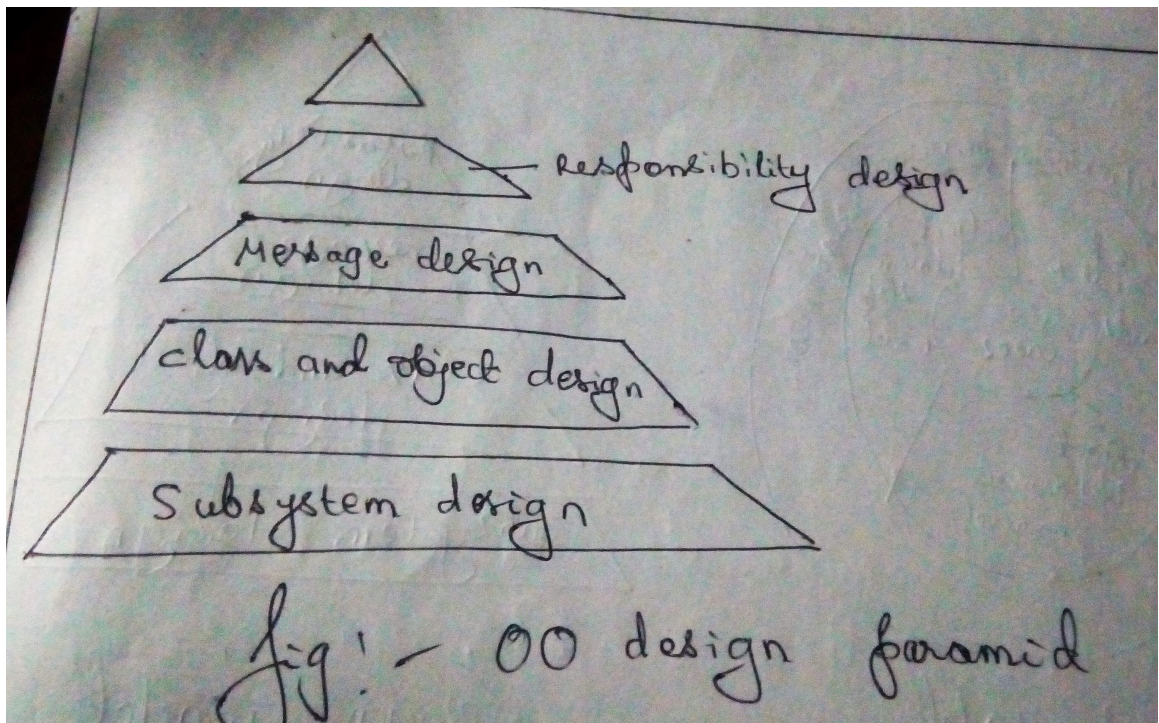 Responsibility design
Message design
class and object design
Subsystem design
fig:- OO design paramid